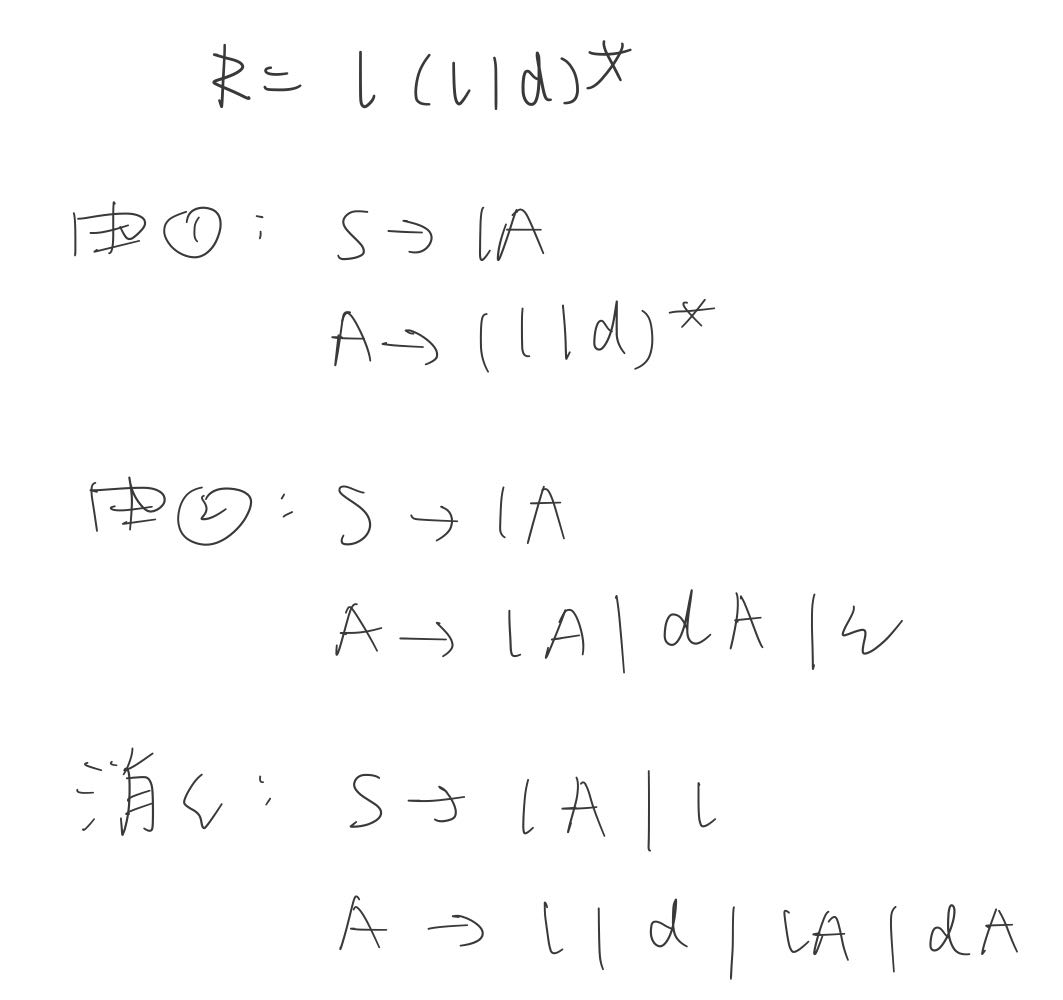 R= l(l|d)*
由①: S→lA
A→(l|d)*
由②: S→lA
A→lA|dA|ε
消ε: S→lA|l
A→l|d|lA|dA